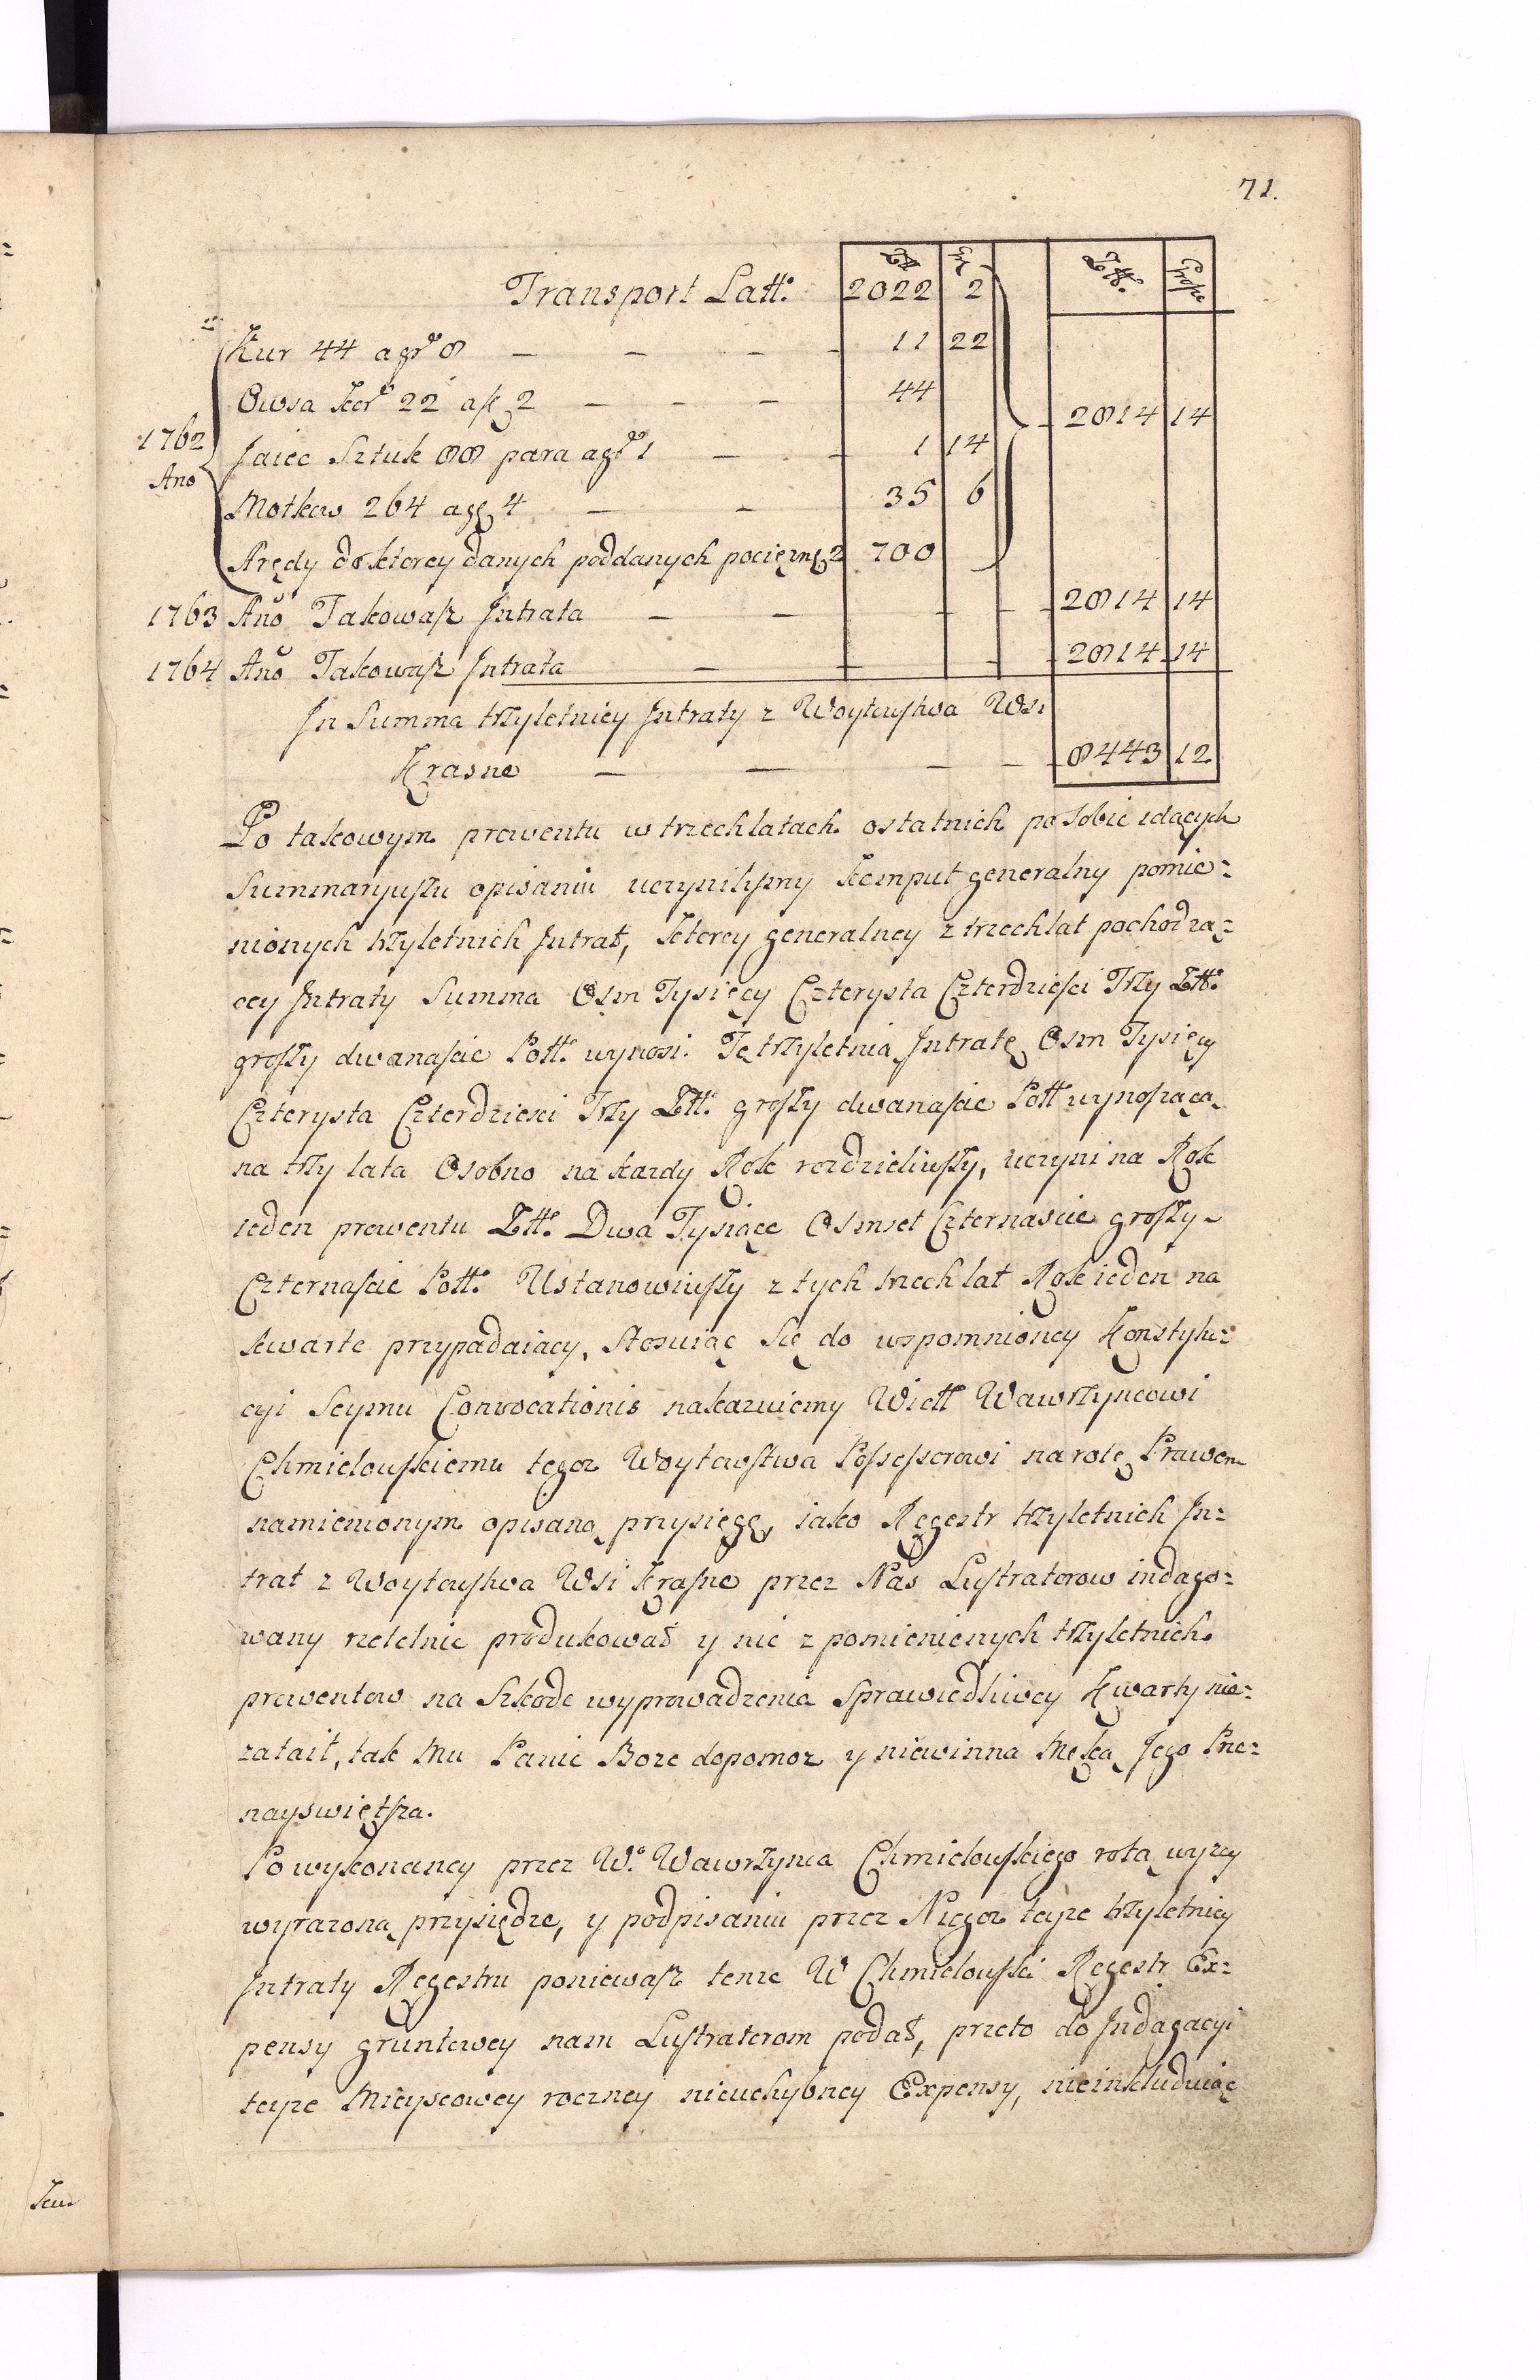 71.
Zł gr Złł. Grosze
Transport Latt. 2022 2
Kur 44 a gr 8 — — — — 11 22
Owsa Kor 22 a fl 2 — — — 44
1762 Jaiec Sztuk 88 para a gr 1 — — 1 14 2814 14
Ano Motkow 264 a gr 4 — — 35 6
Arędy do ktorey danych poddanych pociężnych 2 700
1763 Ano Takowasz Jntrata — — — — 2814 14
1764 Ano Takowasz Jntrata — — — 2814 14
Jn Summa trzyletniey Jntraty z Woytowstwa Wsi
Krasne — — — — 8443 12
Po takowym prowentu w trzech latach ostatnich po sobie idących
Summaryuszu opisaniu uczynilismy Komput generalny pomie=
nionych trzyletnich Jntrat, Ktorey generalney z trzech lat pochodzą=
cey Jntraty Summa Osm Tysięcy Czterysta Czterdzieści Trzy Złł.
groszy dwanaście Poll. wynosi. Tę trzyletnią Jntratę Osm Tysięcy
Czterysta Czterdziesci Trzy Złł. groszy dwanaście Poll wynoszącą
na trzy lata Osobno na kazdy Rok rozdzieliwszy, uczyni na Rok
ieden prowentu Złł. Dwa Tysiące Osmset Czternascie groszy
Czternaście Poll. Ustanowiwszy z tych trzech lat Rok ieden na
kwartę przypadaiący, stosuiąc Się do wspomnioney Konstytu=
cyi Seymu Convocationis nakazuiemy Wiell Wawrzyncowi
Chmielowskiemu tegoz Woytowstwa Possessorowi na rotę Prawem
namienionym opisaną przysięgę, iako Regestr trzyletnich Jn=
trat z Woytowstwa Wsi Krasne przez Nas Lustratorow indago=
wany rzetelnie produkował y nic z pomienionych trzyletnich
prowentow na Szkodę wyprowadzenia Sprawiedliwey Kwarty nie=
zataił, tak Mu Panie Boze dopomoz y niewinna Męka Jego Prze=
nayswiętsza.
Po wykonaney przez W. Wawrzynca Chmielowskiego rotą wyzey
wyrazoną przysiędze, y podpisaniu przez Niegoz teyze trzyletniey
Jntraty Regestru poniewasz tenze W Chmielowski Regestr Ex=
pensy gruntowey nam Lustratorom podał, przeto do Jndagacyi
teyze Mieyscowey roczney nieuchybney Expensy, nieinkluduiąc